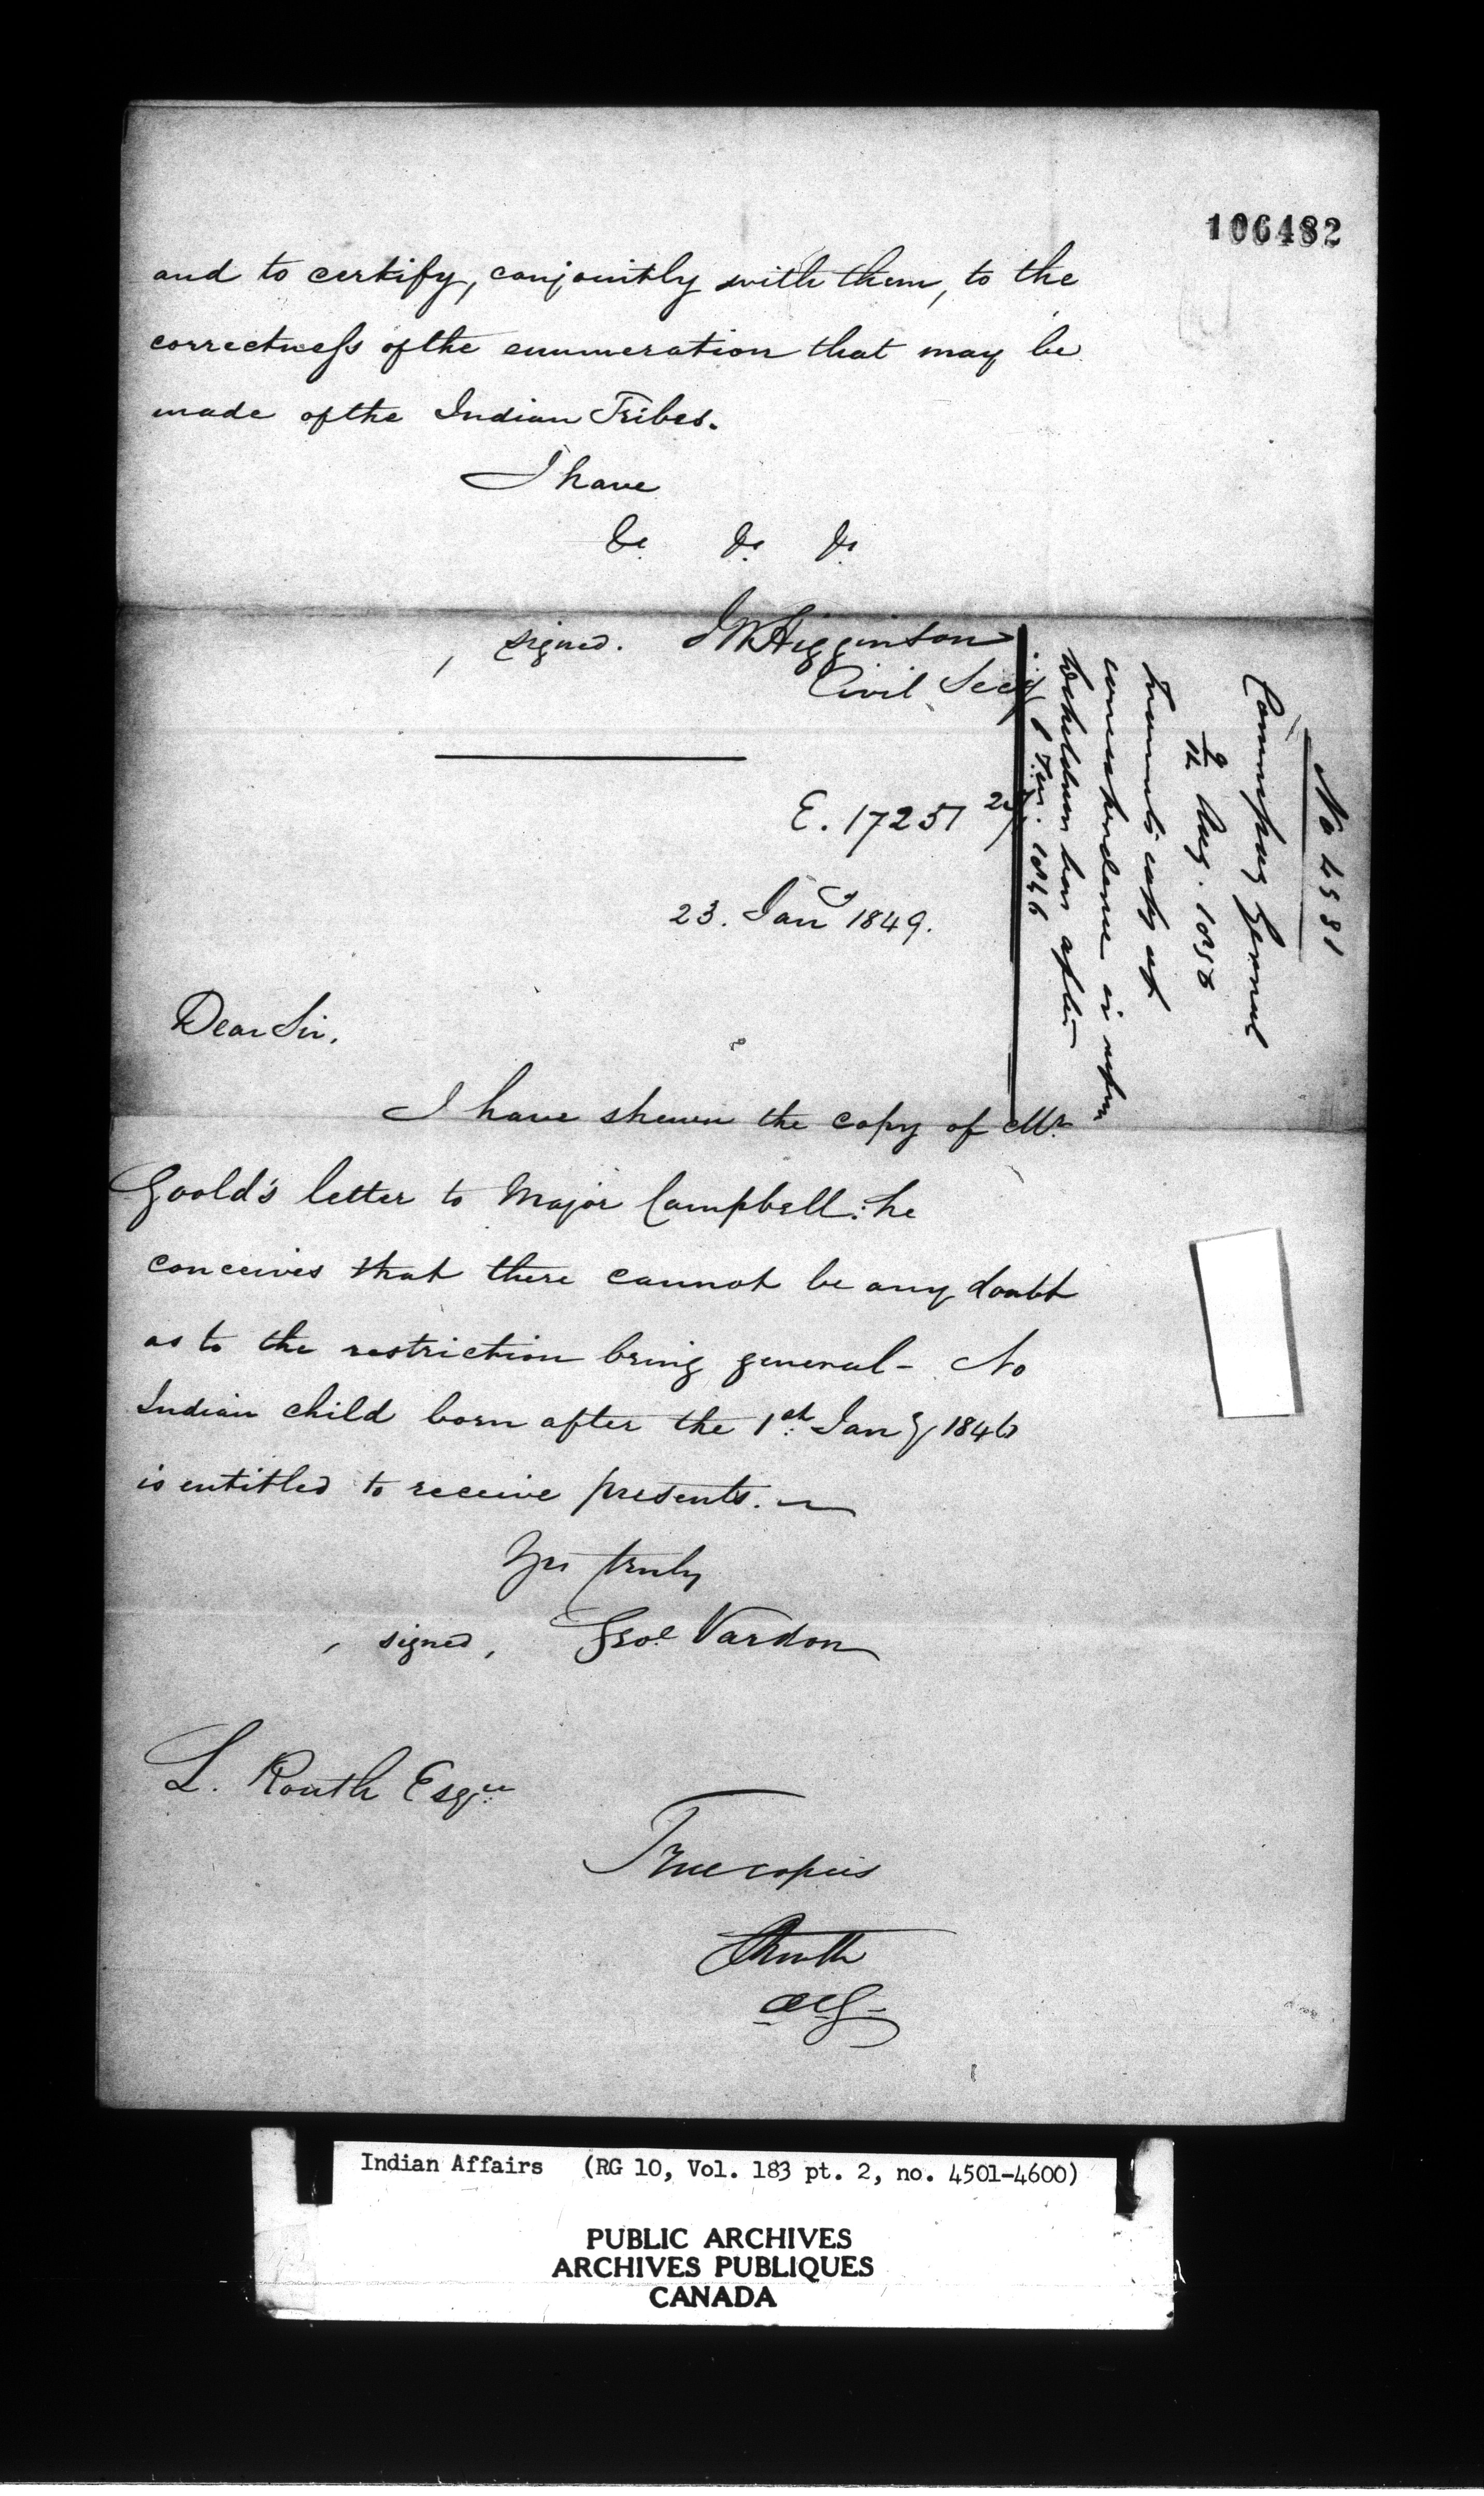 106482
and to certify, conjointly with them, to the
correctness of the enumeration that may be
made of the Indian Tribes.
I have
&c &c &c
signed. J M Higginson
Civil Secy
E. 17251
23. Jany 1849.
Dear Sir,
I have shewn the copy of Mr.
Goold's letter to Major Campbell: he
conceives that there cannot be any doubt
as to the restriction being general - No
Indian child born after the 1st Jany 1846
is entitled to receive presents.
Yrs truly
signed, Geoe Vardon
L. Routh Esqre
True copies
Routh
No 4581
Commissary General
9/12 Aug. 1850
Transmits copy of
correspondence in
to children born after
1 Jan. 1846
Indian Affairs (RG 10, Vol. 183 pt. 2, no. 4501-4600)
PUBLIC ARCHIVES
ARCHIVES PUBLIQUES
CANADA